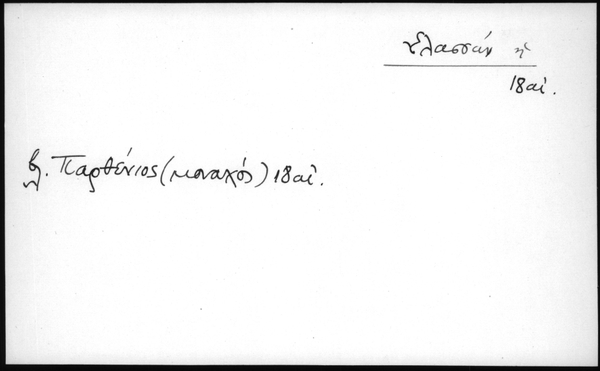 Ελασσάν
18 αἰ.
βλ. Παρθένιος (μοναχός) 18 αἰ.